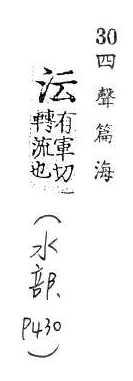 30四聲篇海
沄
有軍切
轉流也
(水部、P430)